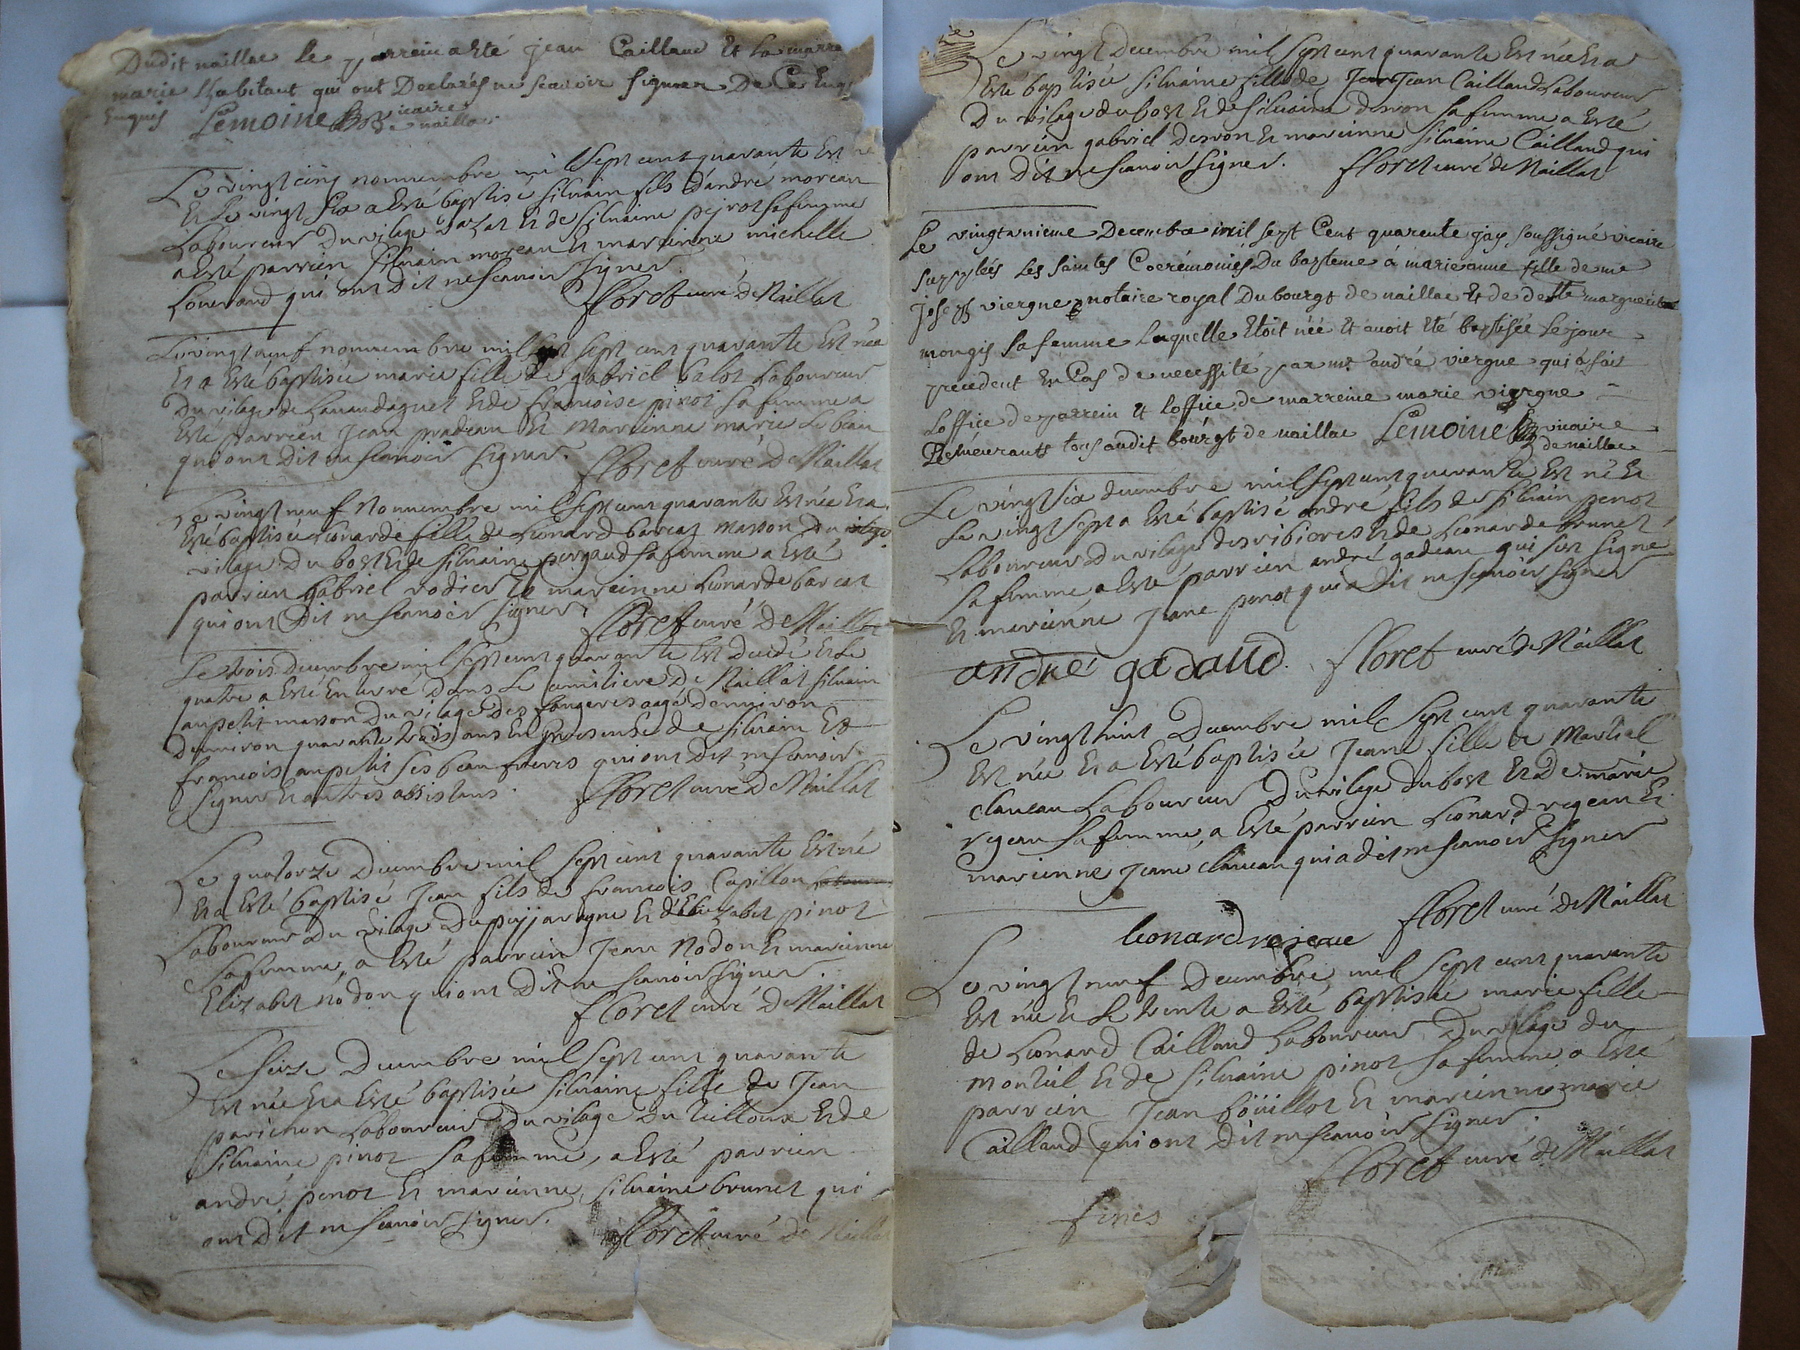 Dudit naillac le parrein a Eté jean Caillaud Et la marre
marie Habitant qui ont Declarés ne scavoir signer De Ce Enq
Enquis Lemoine vicaire
de naillac
Le vingt cinq nouuembre mil sept cent quarante Est né
Et Le vingt six a Esté baptisé siluain fils d'andré moreau
Laboureur Du vilage d'azat Et de siluaine peirot sa femme
a Esté parrien siluain moreau Et marienne michelle
Lonnrand qui ont Dit ne scauoir signer.
floret curé De Naillat
Le vingt neuf nouuembre mil sept cent quarante Est née
Et a Esté baptisée marie fille de gabriel balot Laboureur
Du vilage de Et de francoise pinot sa femme a
Esté parrien Jean pradeau Et marienne marie
qui ont Dit ne scauoir signer.
floret curé De Naillat
Le vingt neuf Nouuembre mil sept cent quarante Est née Et a
Esté baptisée Leonarde fille de Leonard barcat masson Du
vilage Du bost Et de siluaine pergaud sa femme a Esté
parrien gabriel rodier Et marienne Leonarde barcat
qui ont Dit ne scauoir signer,
floret curé De Naillat
Le trois Decembre mil sept cent quarante Est decedé Et Le
quatre a Esté Enterré dans Le cimitiere De Naillat siluain
anpetit masson Du vilage des fongeres aagé denuiron
denuiron quarante trois ans En presence de siluain Et
francois anpetit ses beau freres qui ont Dit ne scauoir
signer Et autres assistans.
floret curé De Naillat
Le quatorze Decembre mil sept cent quarante Est né
Et a Esté baptisé Jean fils de francois Capillon
Laboureur Du vilage Du puyjaragne Et d'Elizabet pinot
sa femme, a Esté parrien Jean Nodon Et marienne
Elizabet nodon qui ont Dit ne scauoir signer.
floret curé De Naillat
Le seize Decembre mil sept cent quarante
Est née Et a Esté baptisée siluaine fille de Jean
parichon Laboureur Du vilage Du tailloux Et de
siluaine pinot sa femme, a Esté parrien
andré penot Et marienne siluaine brunet qui
ont Dit ne scauoir signer.
floret curé De Naillat
Le vingt Decembre mil sept cent quarante Est née Et a
Esté baptisée siluaine fille de Jean Caillaud Laboureur
Du vilage du bost Et de siluaine desvon sa femme a Esté
parrien gabriel desvon Et marienne siluaine Caillaud qui
ont Dit ne scauoir signer.
floret curé de Naillat
Le vingtunieme Decembre mil sept Cent quarente jay soussigné vicaire
supplées Les saintes Coerémonies Du bapteme à marie anne fille de me
joseph viergne notaire royal Du bourgt de naillac Et de dette marguerite
mongis sa femme Laquelle Etoit née Et avoit Eté baptisée Le jour
precedent En Cas de necessité par mr andré viergne qui a fait
Loffice de parrein Et Loffice de marreine marie viergne
Demeurants tous audit bourgt de naillac Lemoine vicaire
de naillac
Le vingt six decembre mil sept cent quarante Est né Et
Le vingt sept a Esté baptisé andré fils de siluain penot
Laboureur Du vilage des ribieres Et de Leonarde brunet
sa femme a Esté parrien andré gadeau qui sest signé
Et marienne Jeane penot qui a Dit ne scauoir signer
andré gadaud. floret curé de Naillat
Le vingt huit Decembre mil sept cent quarante
Est née Et a Esté baptisée Jeane fille de Martial
claueau Laboureur Du vilage Du bost Et De marie
rejeau sa femme, a Esté parrien Leonard rejeau Et
marienne Jeane claueau qui a dit ne scauoir signer
floret curé De Naillat
leonard rejeaue
Le vingt neuf Decembre mil sept cent quarante
Est née Et Le trente a Esté baptisée marie fille
de Leonard Caillaud Laboureur Du vilage du
monteil Et de siluaine pinot sa femme a Esté
parrien Jean Et marienne marie
Caillaud qui ont Dit ne scauoir signer.
floret curé de Naillat
finis